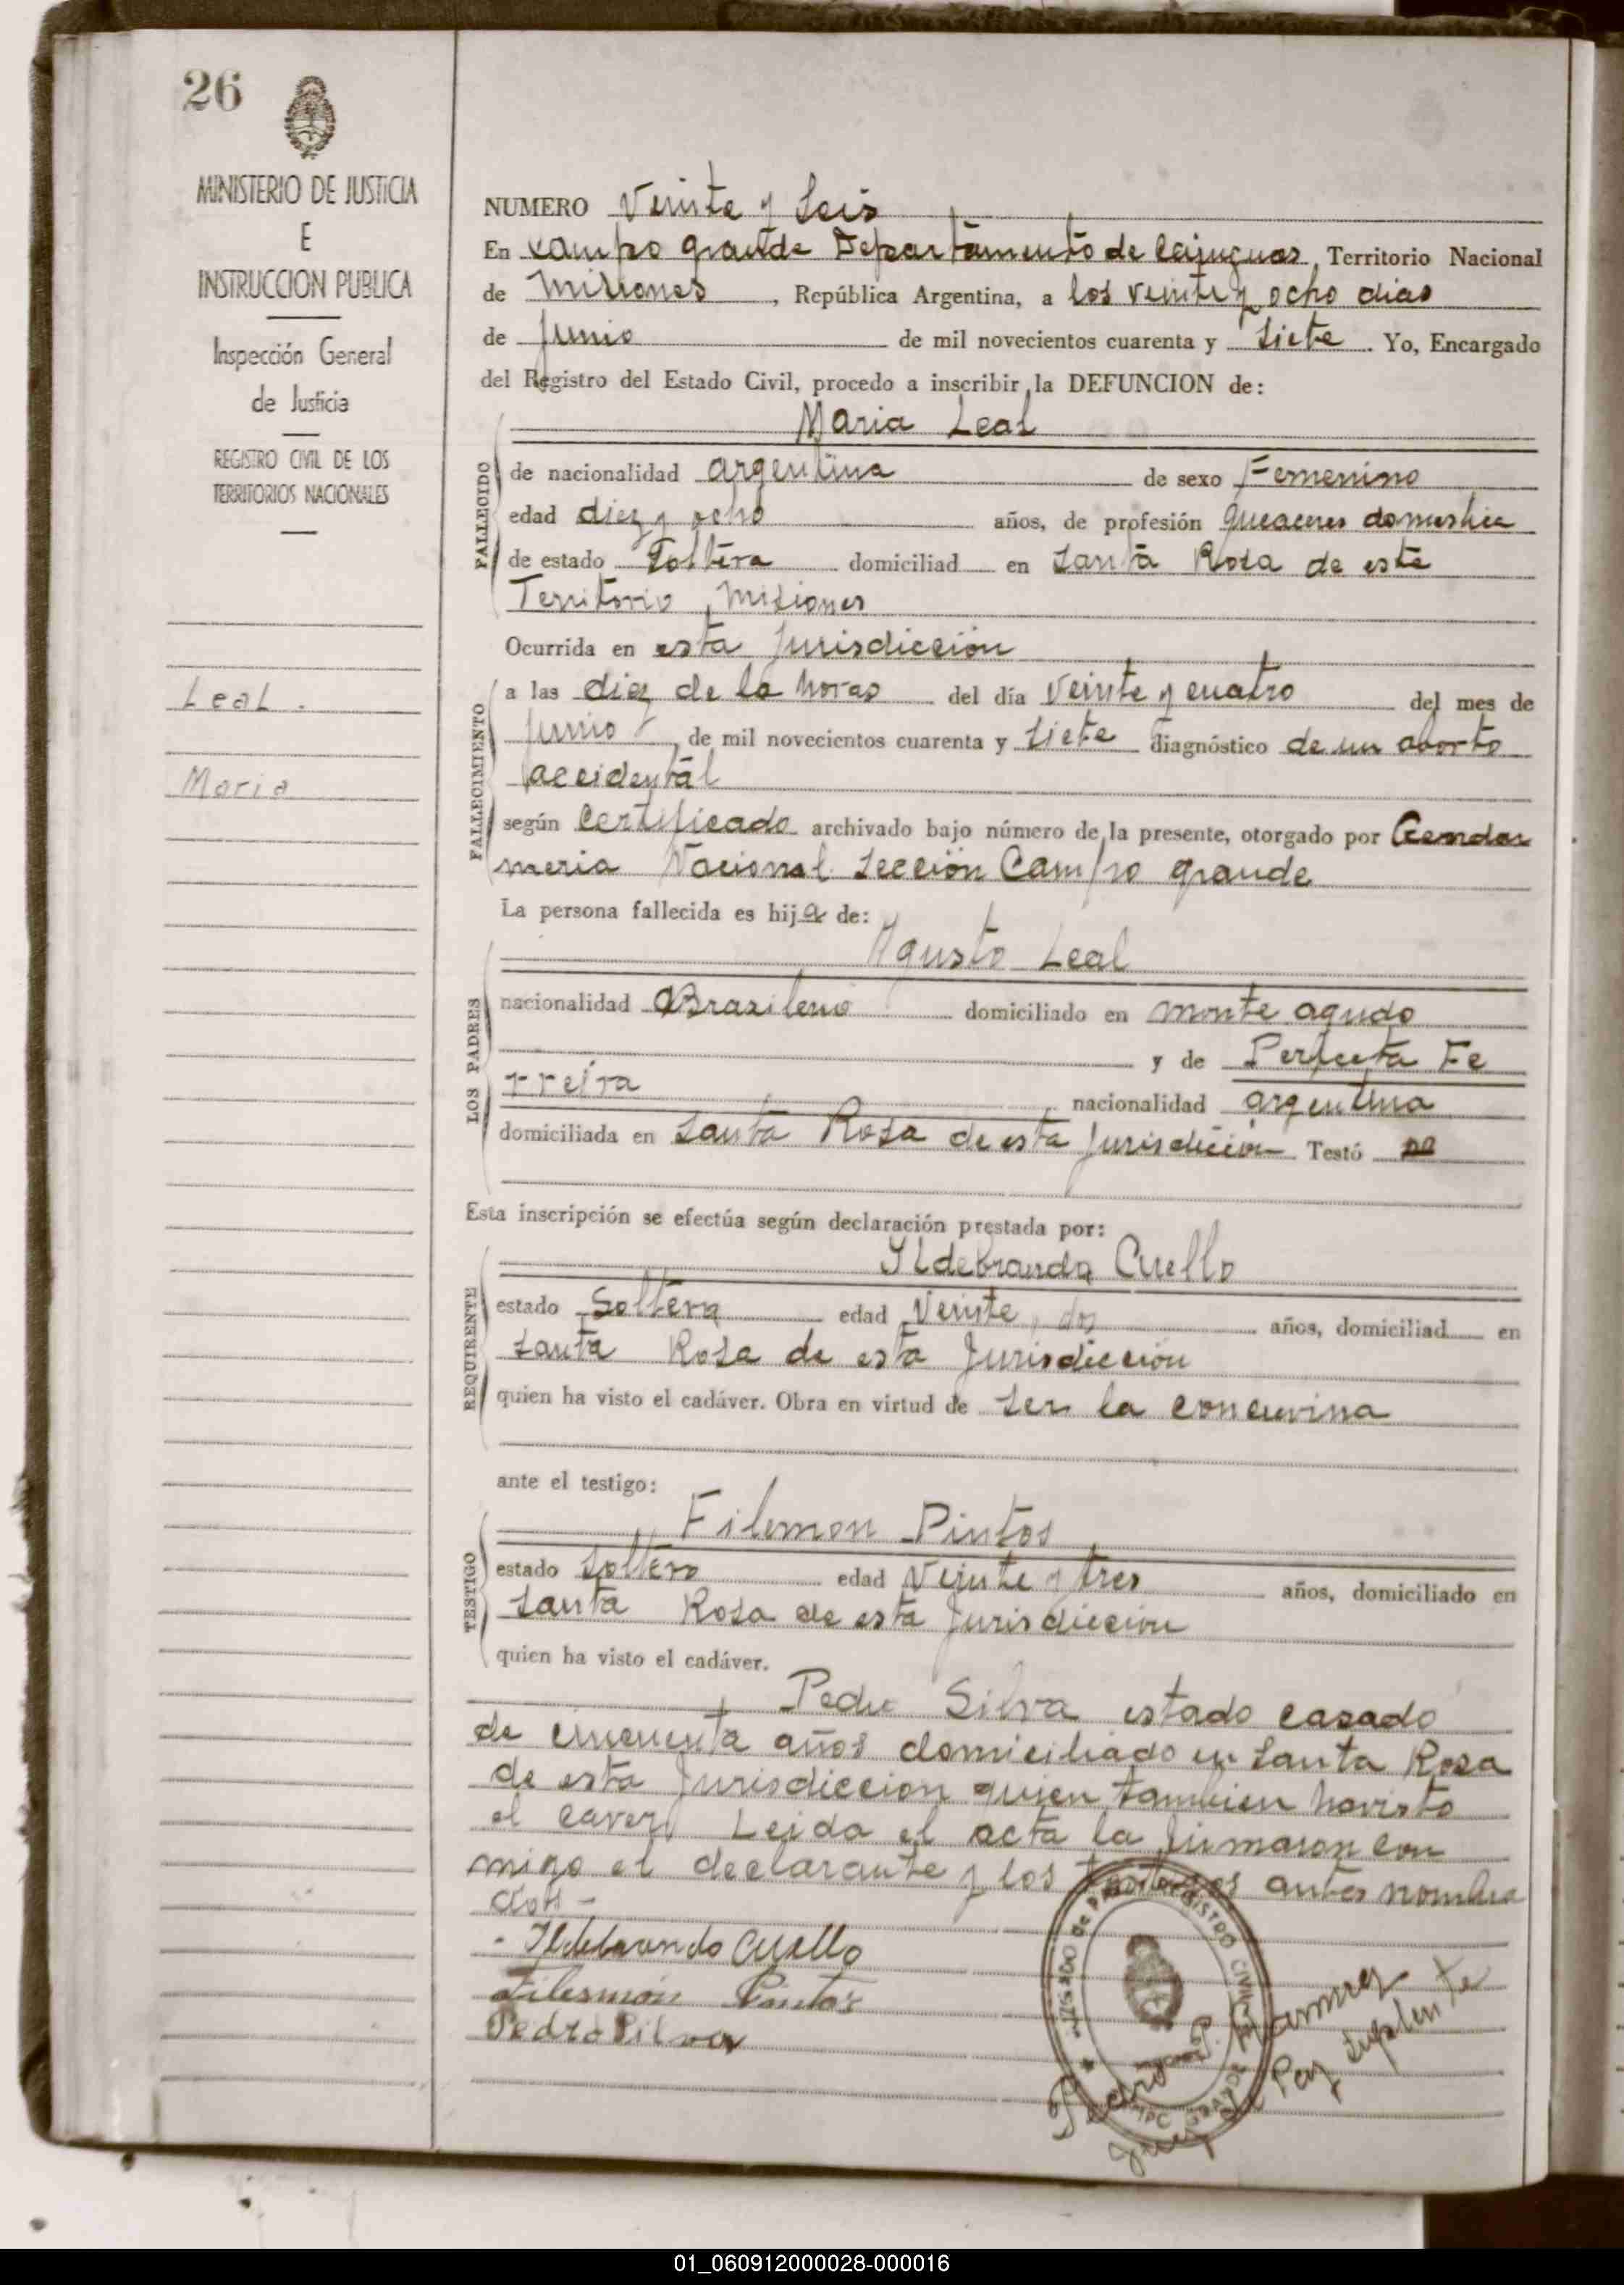 26
MINISTERIO DE JUSTICIA
E
INSTRUCCION PUBLICA
Inspección General
de Justicia
REGISTRO CIVIL DE LOS
TERRITORIOS NACIONALES
Leal.
Maria
NUMERO Veinte y Seis
En campo grande Departamento de Cainguas, Territorio Nacional
de Misiones, República Argentina, a los veinte y ocho dias
de Junio de mil novecientos cuarenta y Siete. Yo, Encargado
del Registro del Estado Civil, procedo a inscribir la DEFUNCION de:
Maria Leal
FALLECIDO
de nacionalidad argentina de sexo Femenino
edad diez y ocho años, de profesión domestica
de estado Soltera domiciliad en Santa Rosa de este
Territorio, Misiones
Ocurrida en esta Jurisdicción
FALLECIMIENTO
a las diez de la horas del día Veinte y cuatro del mes de
Junio de mil novecientos cuarenta y Siete diagnóstico de un aborto
accidental
según Certificado archivado bajo número de la presente, otorgado por Gendar
meria Nacional Sección Campo grande
La persona fallecida es hija de:
Agusto Leal
LOS PADRES
nacionalidad Brazileno domiciliado en monte agudo
y de Perfecta Fe
rreira nacionalidad argentina
domiciliada en Santa Rosa de esta Jurisdicción Testó no
Esta inscripción se efectúa según declaración prestada por:
Yldebrando Cuello
REQUIRENTE
estado Soltero edad Veinte dos años, domiciliad en
Santa Rosa de esta Jurisdicción
quien ha visto el cadáver. Obra en virtud de ser la concuvina
ante el testigo:
Filemon Pintos
TESTIGO
estado Soltero edad Veinte y tres años, domiciliado en
Santa Rosa de esta Jurisdicción
quien ha visto el cadáver.
Pedro Silva estado casado
de cincuenta años domiciliado en Santa Rosa
de esta Jurisdiccion quien tambien havisto
el caver Leida el acta la firmaron con
migo el declarante y los testigos antes nombra
dos -
Ildebrando Cuello
Filemón Pintos
Pedro Silva
Pedro P. Ramirez
Juez de Paz Suplente
01_060912000028-000016